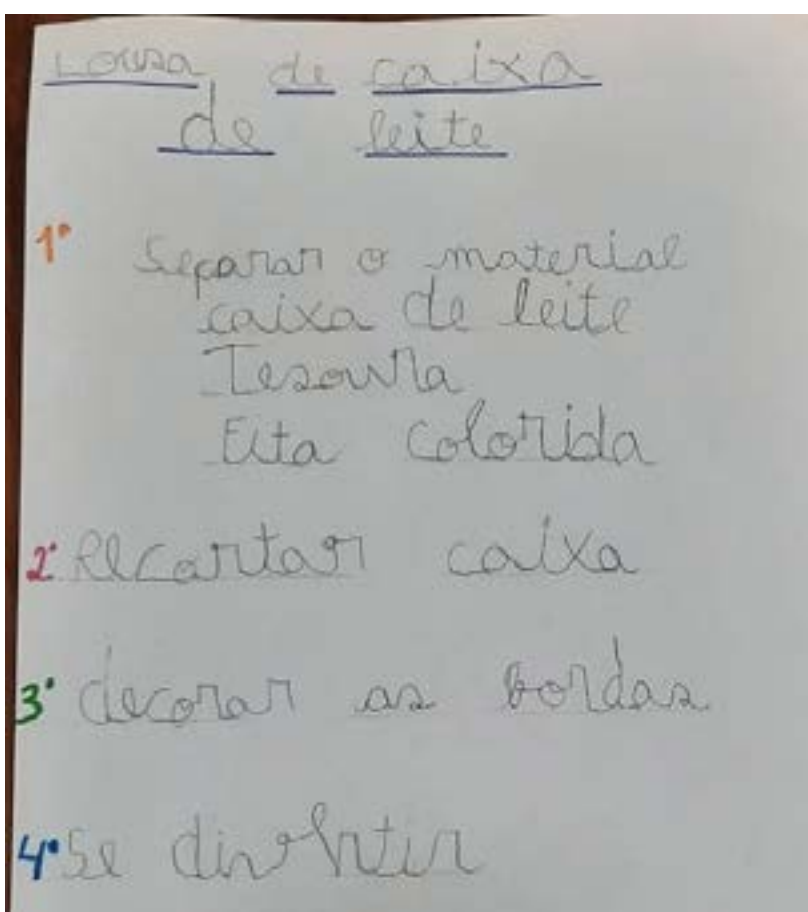 Lousa de caixa
de leite
1° Separar o material
caixa de leite
Tesoura
Fita colorida
2° Recortar caixa
3° decorar as bordas
4° Se divertir